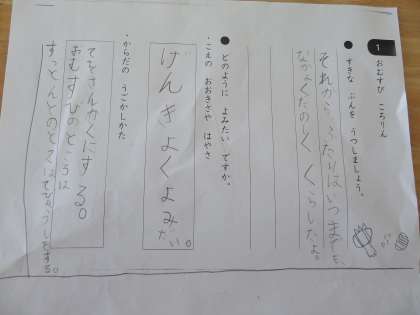 1 おむすび ころりん
●すきな ぶんを うつしましょう。
それから、ふたりはいつまでも、
なかよくたのしく くらしたよ。
●どのように よみたい ですか。
・こえの おおきさや はやさ
げんきよくよみ
たい。
・からだの うごかしかた
てをさんかくにする。
おむすびのところは